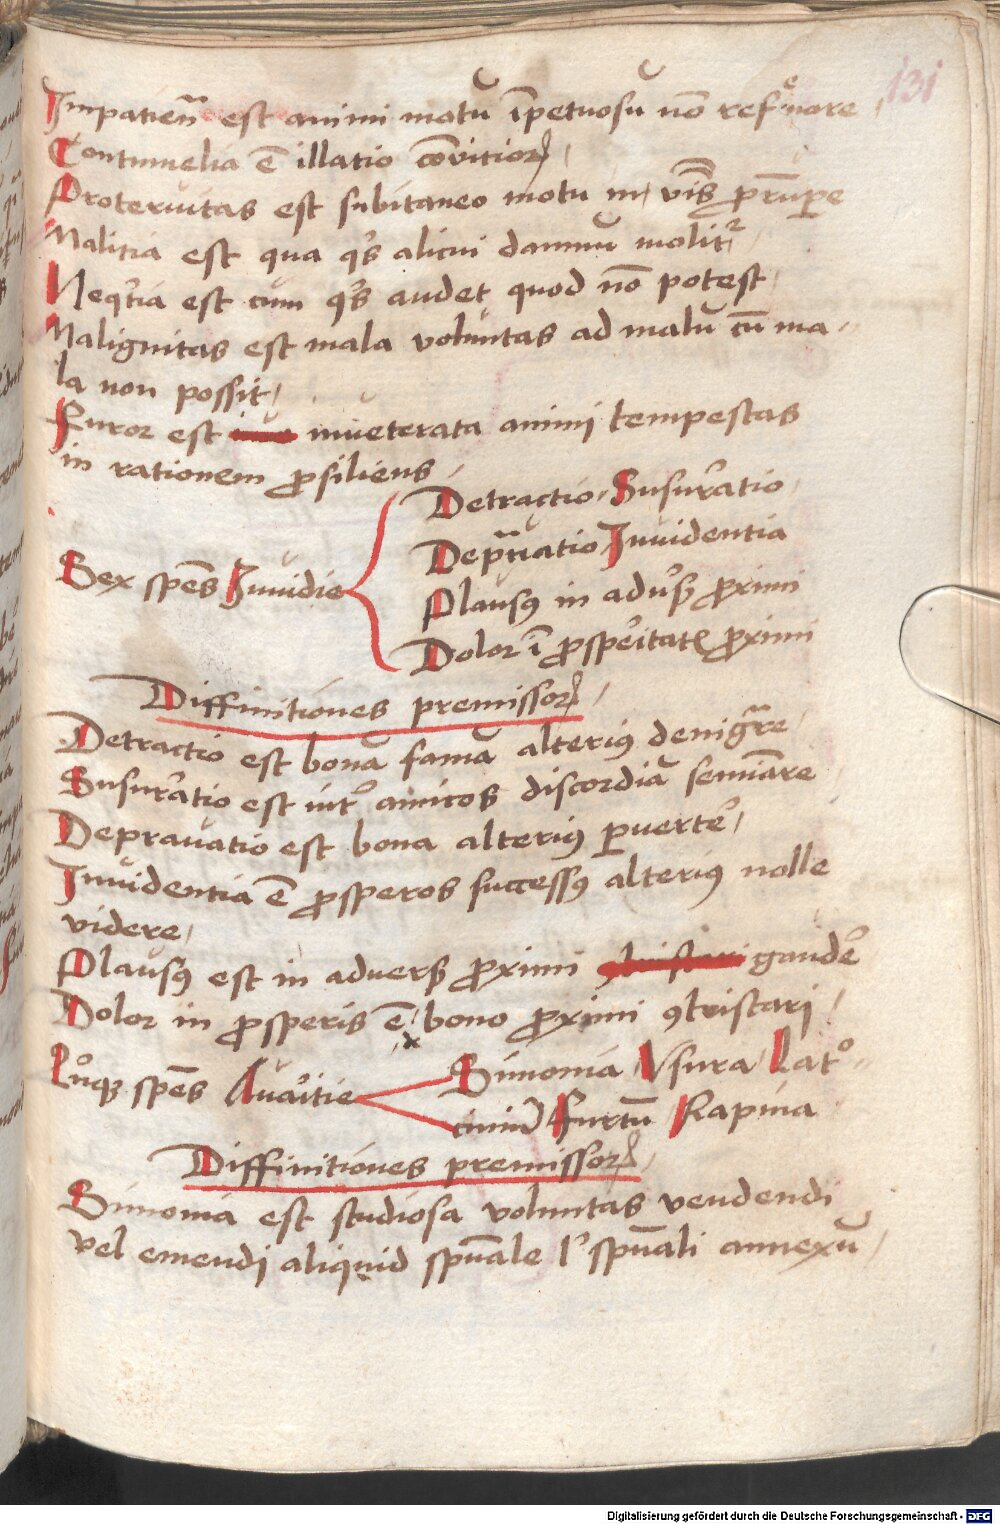 131
Impatien̄ est animi motū īpetuosū nō refrenare
Contumelia ē illatio cōvitioꝝ
Proteruitas est subitaneo motu in vīs prūpe
Malitia est qua q's alicui damnū molit᷑
Neq'tia est cum q's audet quod nō potest
Malignitas est mala voluntas ad malū cū ma
la non possit
Furor est inueterata animi tempestas
in rationem ꝓsiliens
Sex spēs Inuidie
Detractio Susurratio
Deprauatio Inuidentia
Plausꝯ in adu'sis ꝓximi
Dolor ī ꝓsperitatꝭ ꝓximi
Diffinitiones premissoꝝ
Detractio est bonā famā alteriꝯ denigrare
Susurratio est int' amicos discordiā semināre
Deprauatio est bona alteriꝯ ꝑuerte'
Inuidentia ē ꝓsperos successꝯ alteriꝯ nolle
videre
Plausꝯ est in aduersis ꝓximi gaude'
Dolor in ꝓsperis ē bono ꝓximi ꝯtristari
spēs Auaritie
Simonia Usura Lat°
ciniū Furtū Rapina
Diffinitiones premissoꝝ
Simonia est studiosa voluntas vendendi
vel emendi aliquid spūale l' spūali annexū
Digitalisierung gefördert durch die Deutsche Forschungsgemeinschaft - DFG